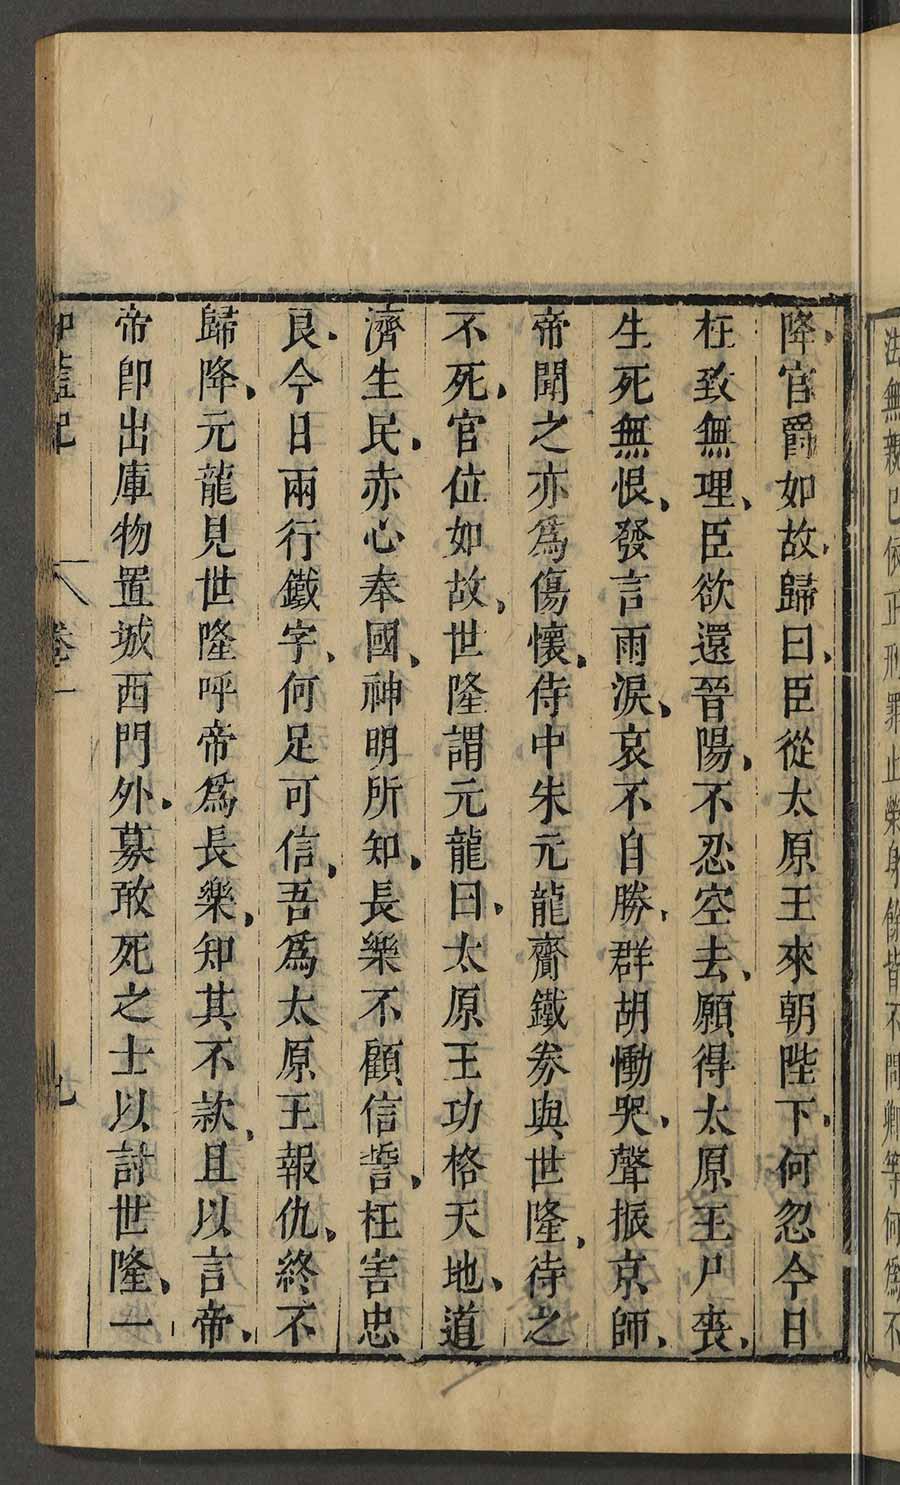 法無親已依正刑罪止榮身餘皆不問卿等何為不
降官爵如故歸曰臣從太原王來朝陛下何忽今日
枉致無理臣欲還晉陽不忍空去願得太原王尸喪
生死無恨發言雨淚哀不自勝群胡慟哭聲振京師
帝聞之亦為傷懷侍中朱元龍齎鐵券與世隆待之
不死官位如故世隆謂元龍曰太原王功格天地道
濟生民赤心奉國神明所知長樂不顧信誓枉害忠
良今日兩行鐵字何足可信吾為太原王報仇終不
歸降元龍見世隆呼帝為長樂知其不款且以言帝
帝即出庫物置城西門外募敢死之士以討世隆一
伽藍記 卷一 九